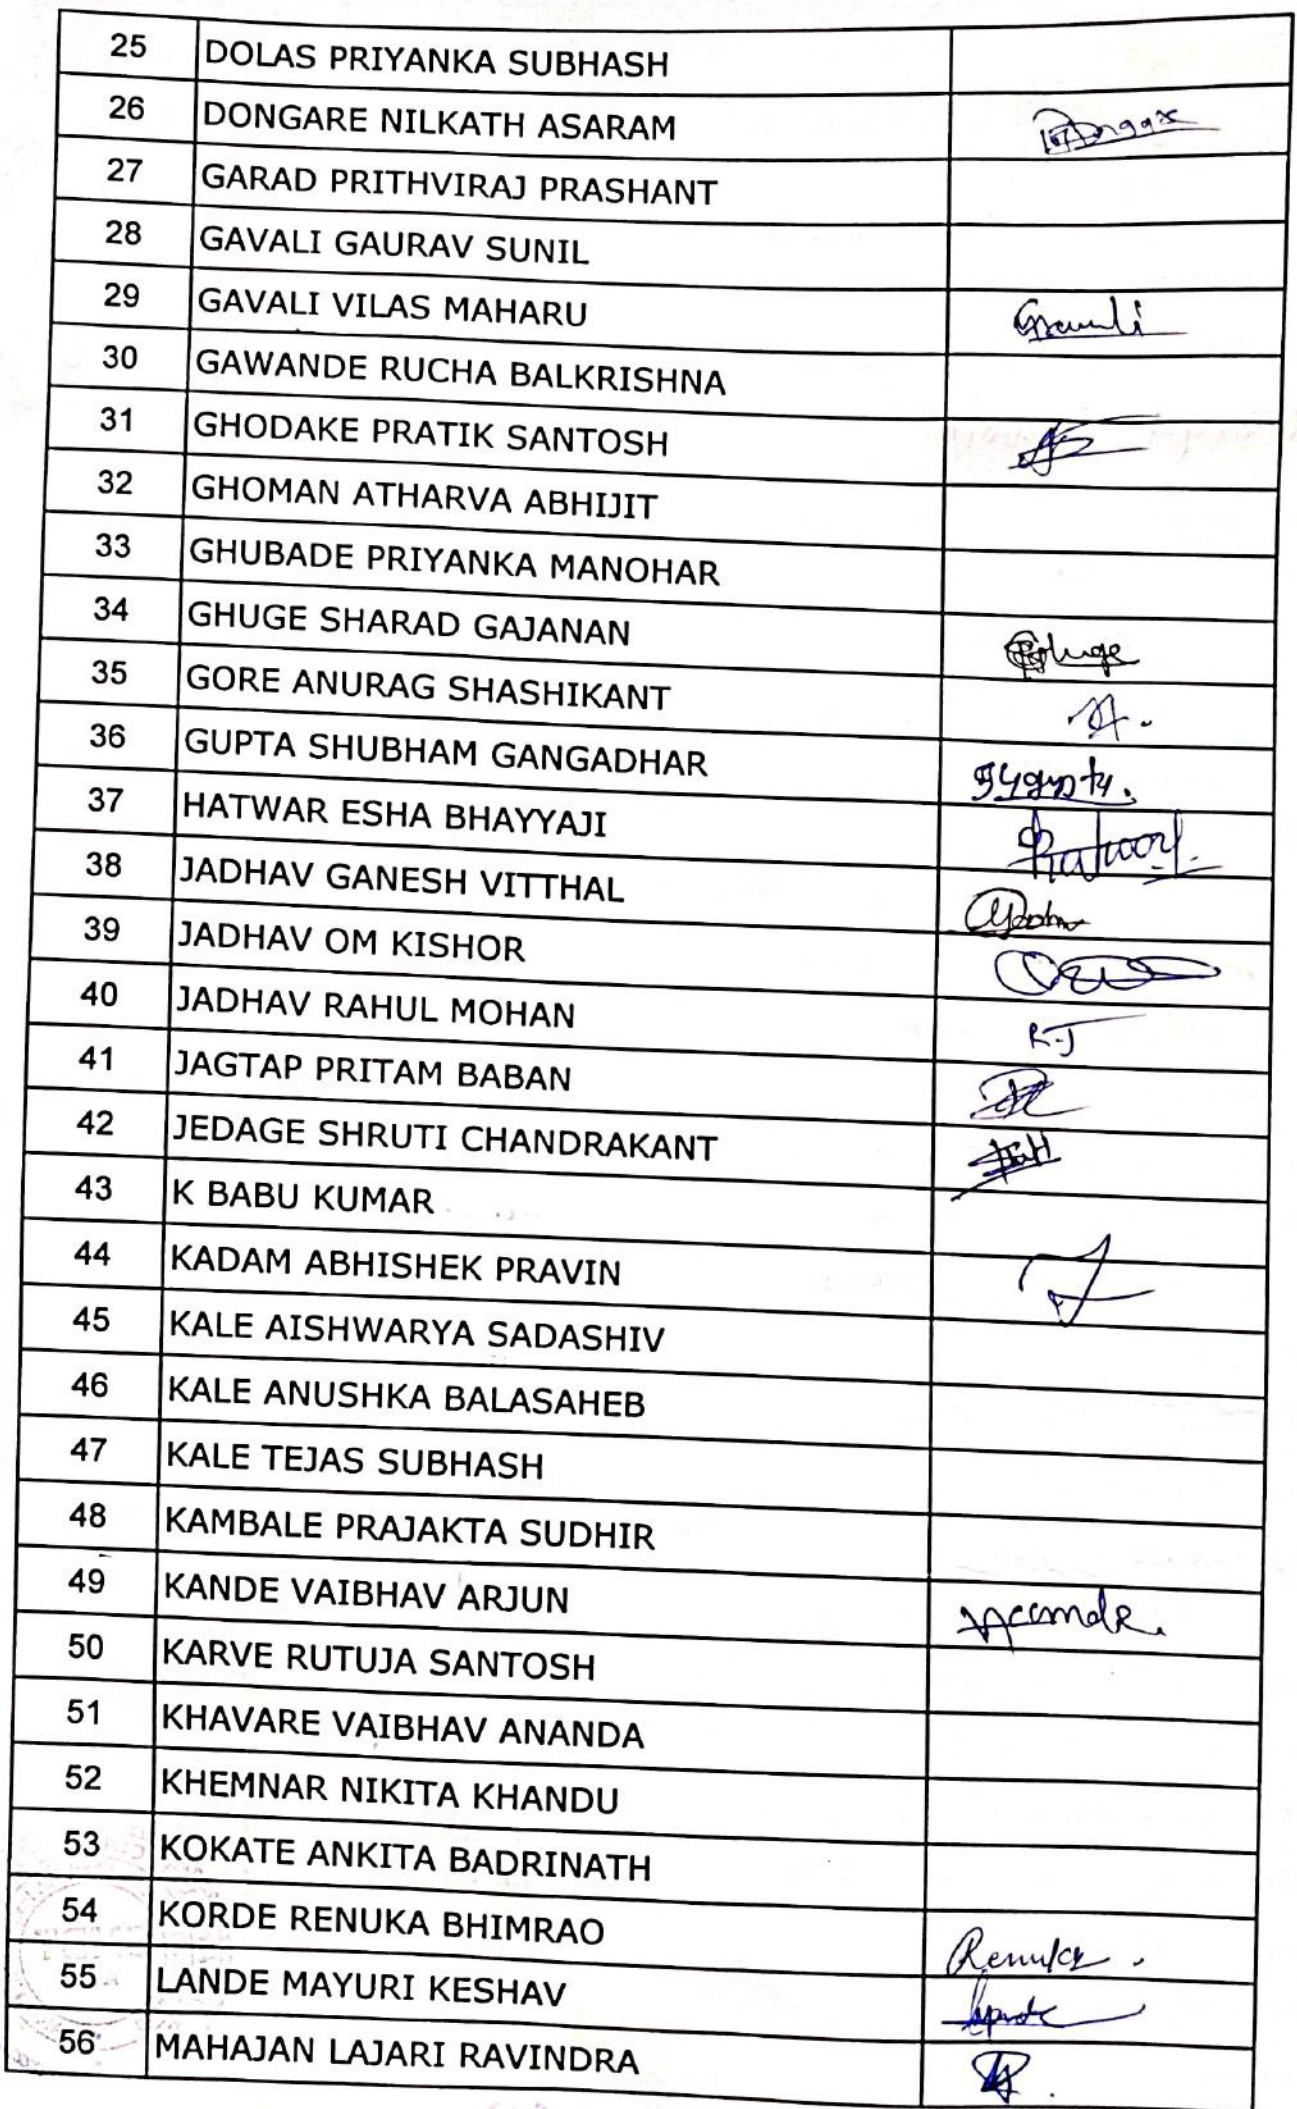 25 DOLAS PRIYANKA SUBHASH
26 DONGARE NILKATH ASARAM
27 GARAD PRITHVIRAJ PRASHANT
28 GAVALI GAURAV SUNIL
29 GAVALI VILAS MAHARU
30 GAWANDE RUCHA BALKRISHNA
31 GHODAKE PRATIK SANTOSH
32 GHOMAN ATHARVA ABHIJIT
33 GHUBADE PRIYANKA MANOHAR
34 GHUGE SHARAD GAJANAN
35 GORE ANURAG SHASHIKANT
36 GUPTA SHUBHAM GANGADHAR
37 HATWAR ESHA BHAYYAJI
38 JADHAV GANESH VITTHAL
39 JADHAV OM KISHOR
40 JADHAV RAHUL MOHAN R.J
41 JAGTAP PRITAM BABAN
42 JEDAGE SHRUTI CHANDRAKANT
43 K BABU KUMAR
44 KADAM ABHISHEK PRAVIN
45 KALE AISHWARYA SADASHIV
46 KALE ANUSHKA BALASAHEB
47 KALE TEJAS SUBHASH
48 KAMBALE PRAJAKTA SUDHIR
49 KANDE VAIBHAV ARJUN
50 KARVE RUTUJA SANTOSH
51 KHAVARE VAIBHAV ANANDA
52 KHEMNAR NIKITA KHANDU
53 KOKATE ANKITA BADRINATH
54 KORDE RENUKA BHIMRAO Renuka
55 LANDE MAYURI KESHAV
56 MAHAJAN LAJARI RAVINDRA